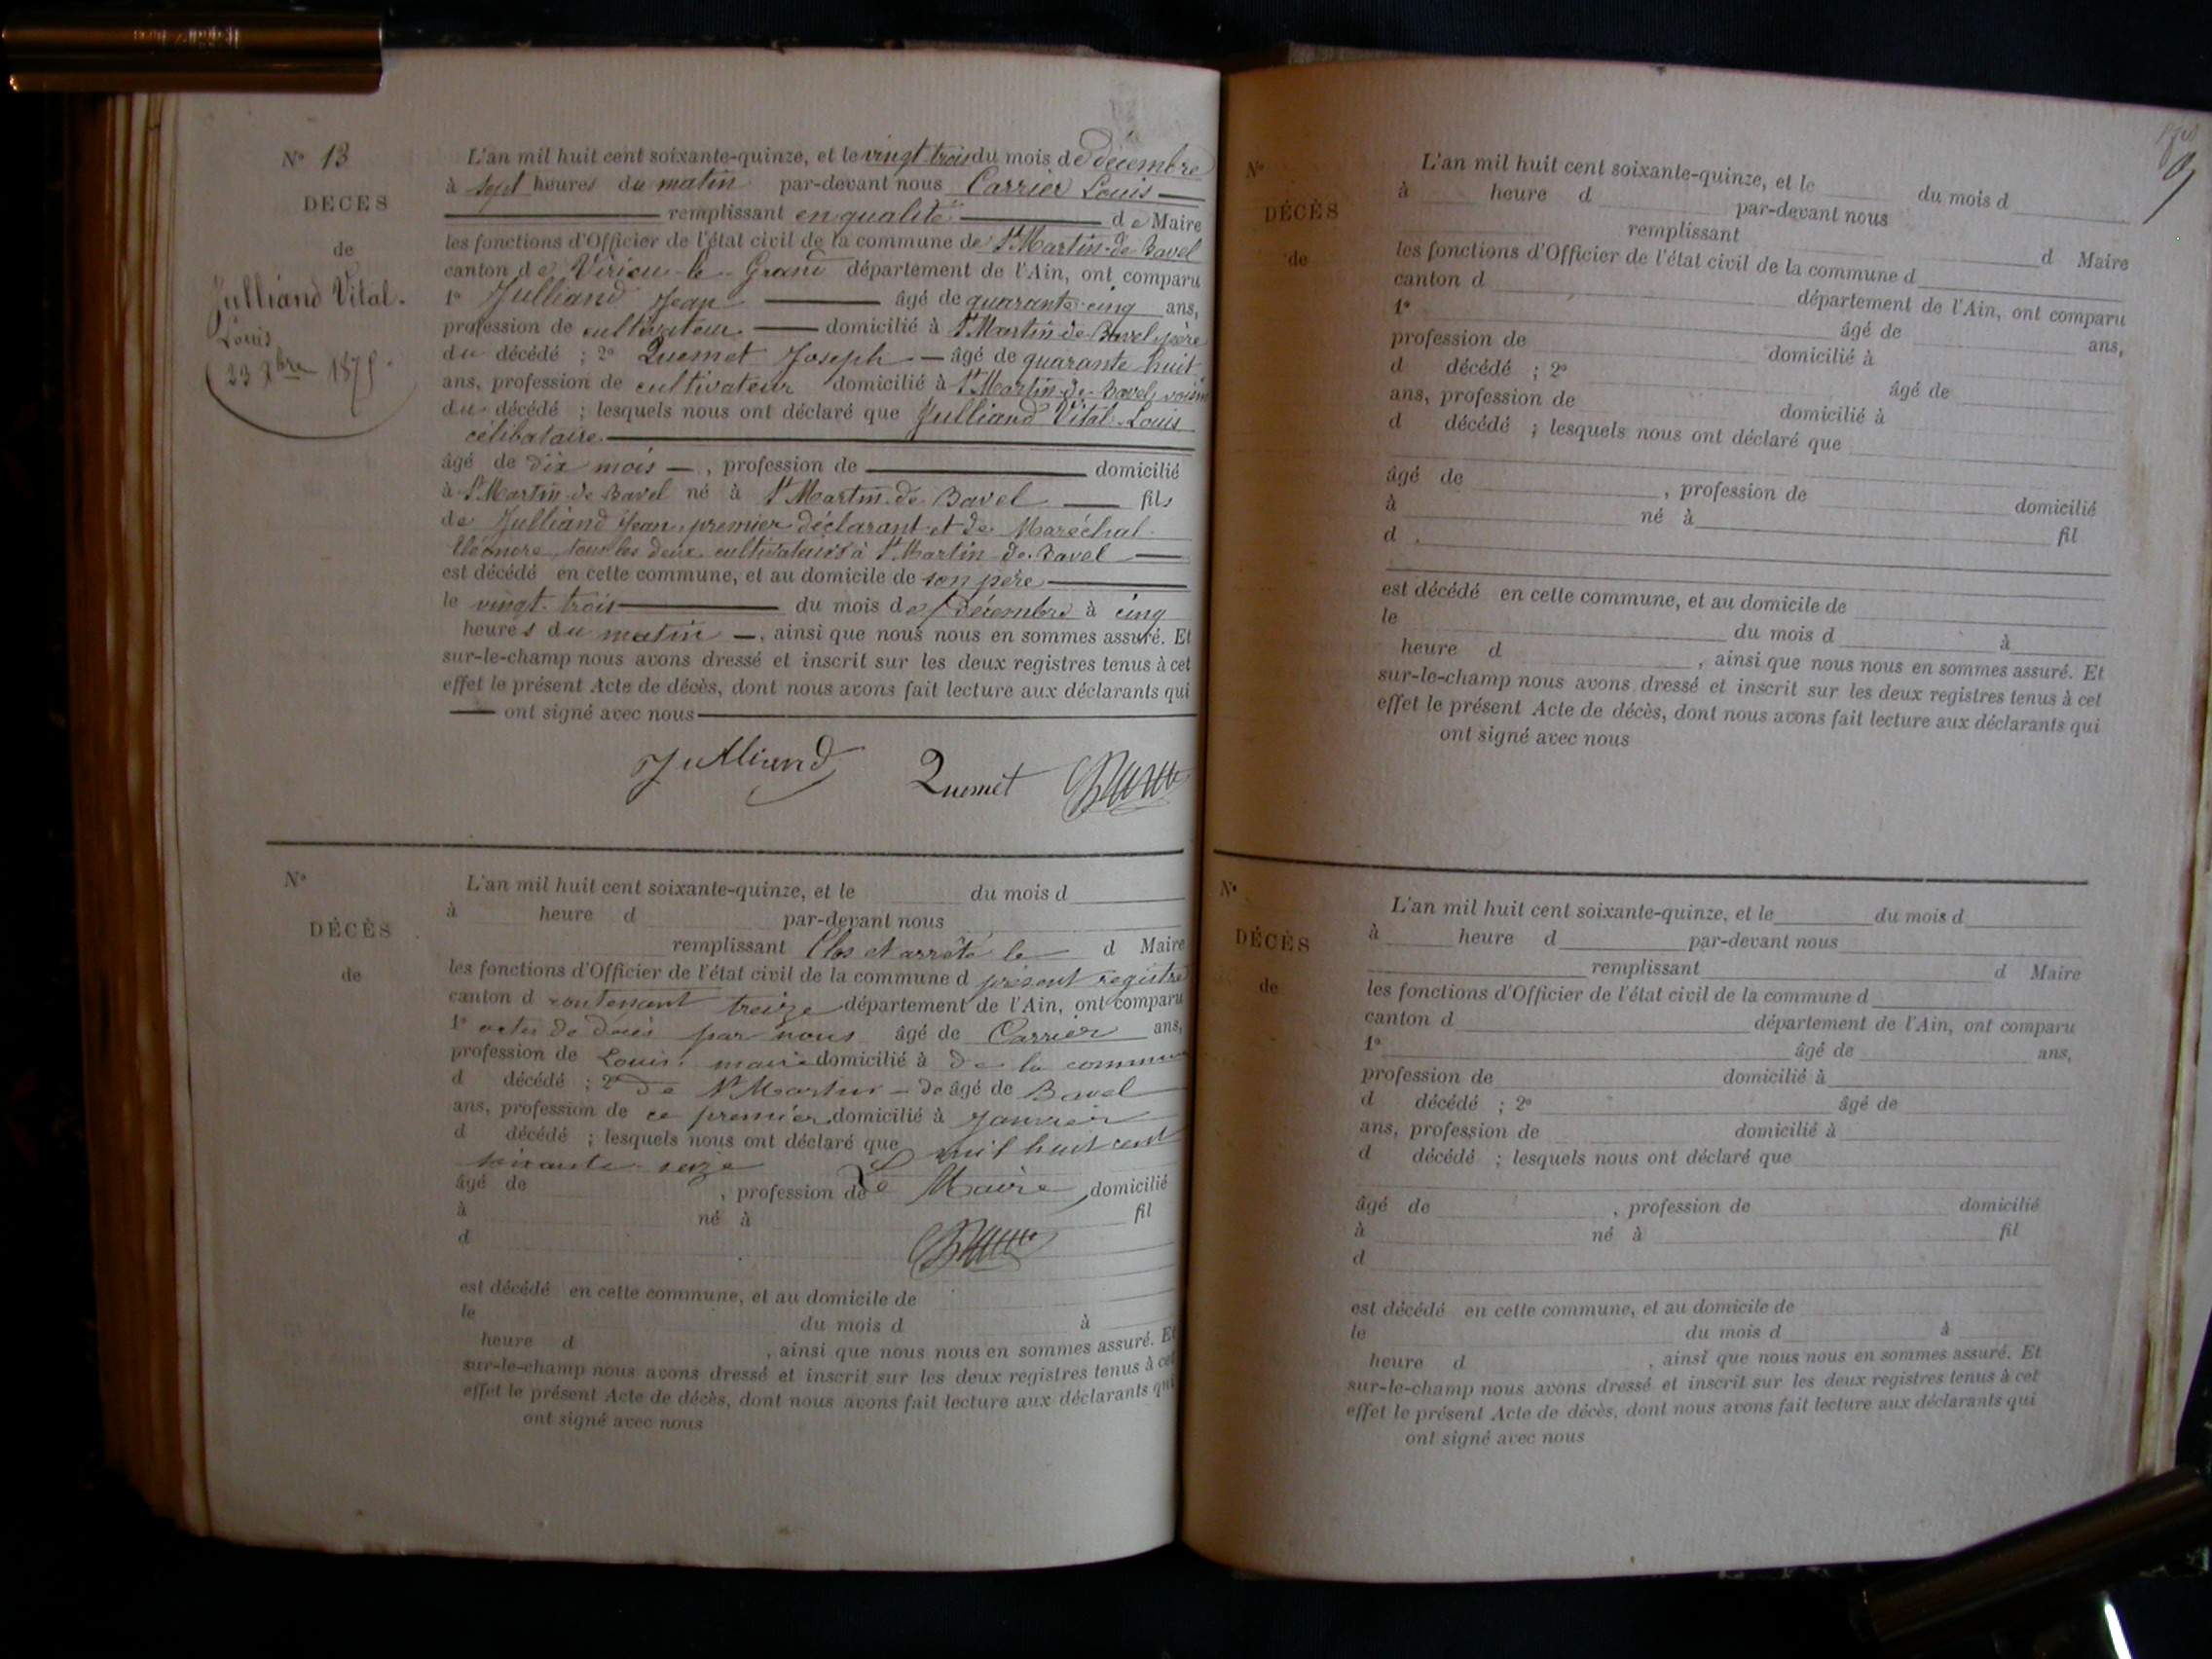 N° 13
DÉCÈS
de
Julliand Vital
Louis
(23 Xbre 1875
L'an mil huit cent soixante-quinze, et le vingt-trois du mois de décembre
à sept heures du matin par-devant nous Carrier Louis
remplissant en qualité de Maire
les fonctions d'Officier de l'état civil de la commune de St Martin-de-Bavel
canton de Virieu-le-Grand département de l'Ain, ont comparu
1° Julliand Jean âgé de quarante-cinq ans,
profession de cultivateur domicilié à St Martin-de-Bavel, père
du décédé ; 2° Quemet Joseph âgé de quarante huit
ans, profession de cultivateur domicilié à St Martin-de-Bavel, voisin
du décédé ; lesquels nous ont déclaré que Julliand Vital-Louis
célibataire
âgé de dix mois, profession de domicilié
à St Martin de Bavel né à St Martin-de-Bavel fils
de Julliand Jean, premier déclarant et de Maréchal
Eléonore, tous les deux cultivateurs à St Martin-de-Bavel
est décédé en cette commune, et au domicile de son père
le vingt-trois du mois de décembre à cinq
heures du matin, ainsi que nous nous en sommes assuré. Et
sur-le-champ nous avons dressé et inscrit sur les deux registres tenus à cet
effet le présent Acte de décès, dont nous avons fait lecture aux déclarants qui
ont signé avec nous
Julliand Quemet
N°
DÉCÈS
de
L'an mil huit cent soixante-quinze, et le du mois d
à heure d par-devant nous
remplissant Clos et arrêté le d Maire
les fonctions d'Officier de l'état civil de la commune d présent registre
canton d contenant treize département de l'Ain, ont comparu
1° actes de décès par nous âgé de Carrier ans,
profession de Louis, maire domicilié à de la commune
d décédé ; 2° de St Martin-de âgé de Bavel
ans, profession de ce premier domicilié à Janvier
d décédé ; lesquels nous ont déclaré que mil huit cent
soixante-seize
âgé de , profession de Le Maire, domicilié
à né à fil
d
est décédé en cette commune, et au domicile de
le du mois d à
heure d , ainsi que nous nous en sommes assuré. Et
sur-le-champ nous avons dressé et inscrit sur les deux registres tenus à cet
effet le présent Acte de décès, dont nous avons fait lecture aux déclarants qui
ont signé avec nous
N°
DÉCÈS
de
L'an mil huit cent soixante-quinze, et le du mois d
à heure d par-devant nous
remplissant d Maire
les fonctions d'Officier de l'état civil de la commune d
canton d département de l'Ain, ont comparu
1° âgé de ans,
profession de domicilié à
d décédé ; 2° âgé de
ans, profession de domicilié à
d décédé ; lesquels nous ont déclaré que
âgé de , profession de domicilié
à né à fil
d
est décédé en cette commune, et au domicile de
le du mois d à
heure d , ainsi que nous nous en sommes assuré. Et
sur-le-champ nous avons dressé et inscrit sur les deux registres tenus à cet
effet le présent Acte de décès, dont nous avons fait lecture aux déclarants qui
ont signé avec nous
N°
DÉCÈS
de
L'an mil huit cent soixante-quinze, et le du mois d
à heure d par-devant nous
remplissant d Maire
les fonctions d'Officier de l'état civil de la commune d
canton d département de l'Ain, ont comparu
1° âgé de ans,
profession de domicilié à
d décédé ; 2° âgé de
ans, profession de domicilié à
d décédé ; lesquels nous ont déclaré que
âgé de , profession de domicilié
à né à fil
d
est décédé en cette commune, et au domicile de
le du mois d à
heure d , ainsi que nous nous en sommes assuré. Et
sur-le-champ nous avons dressé et inscrit sur les deux registres tenus à cet
effet le présent Acte de décès, dont nous avons fait lecture aux déclarants qui
ont signé avec nous